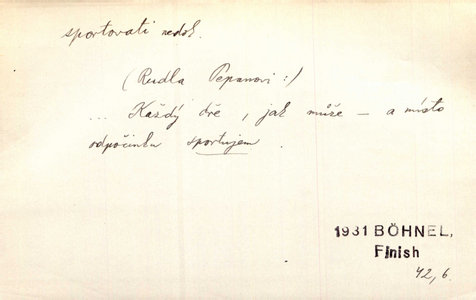 sportovati nedok.
(Rudla Pepanovi :)
... Každý dře, jak může – a místo
odpočinku sportujem.
1931 BÖHNEL,
Finish
42,6.